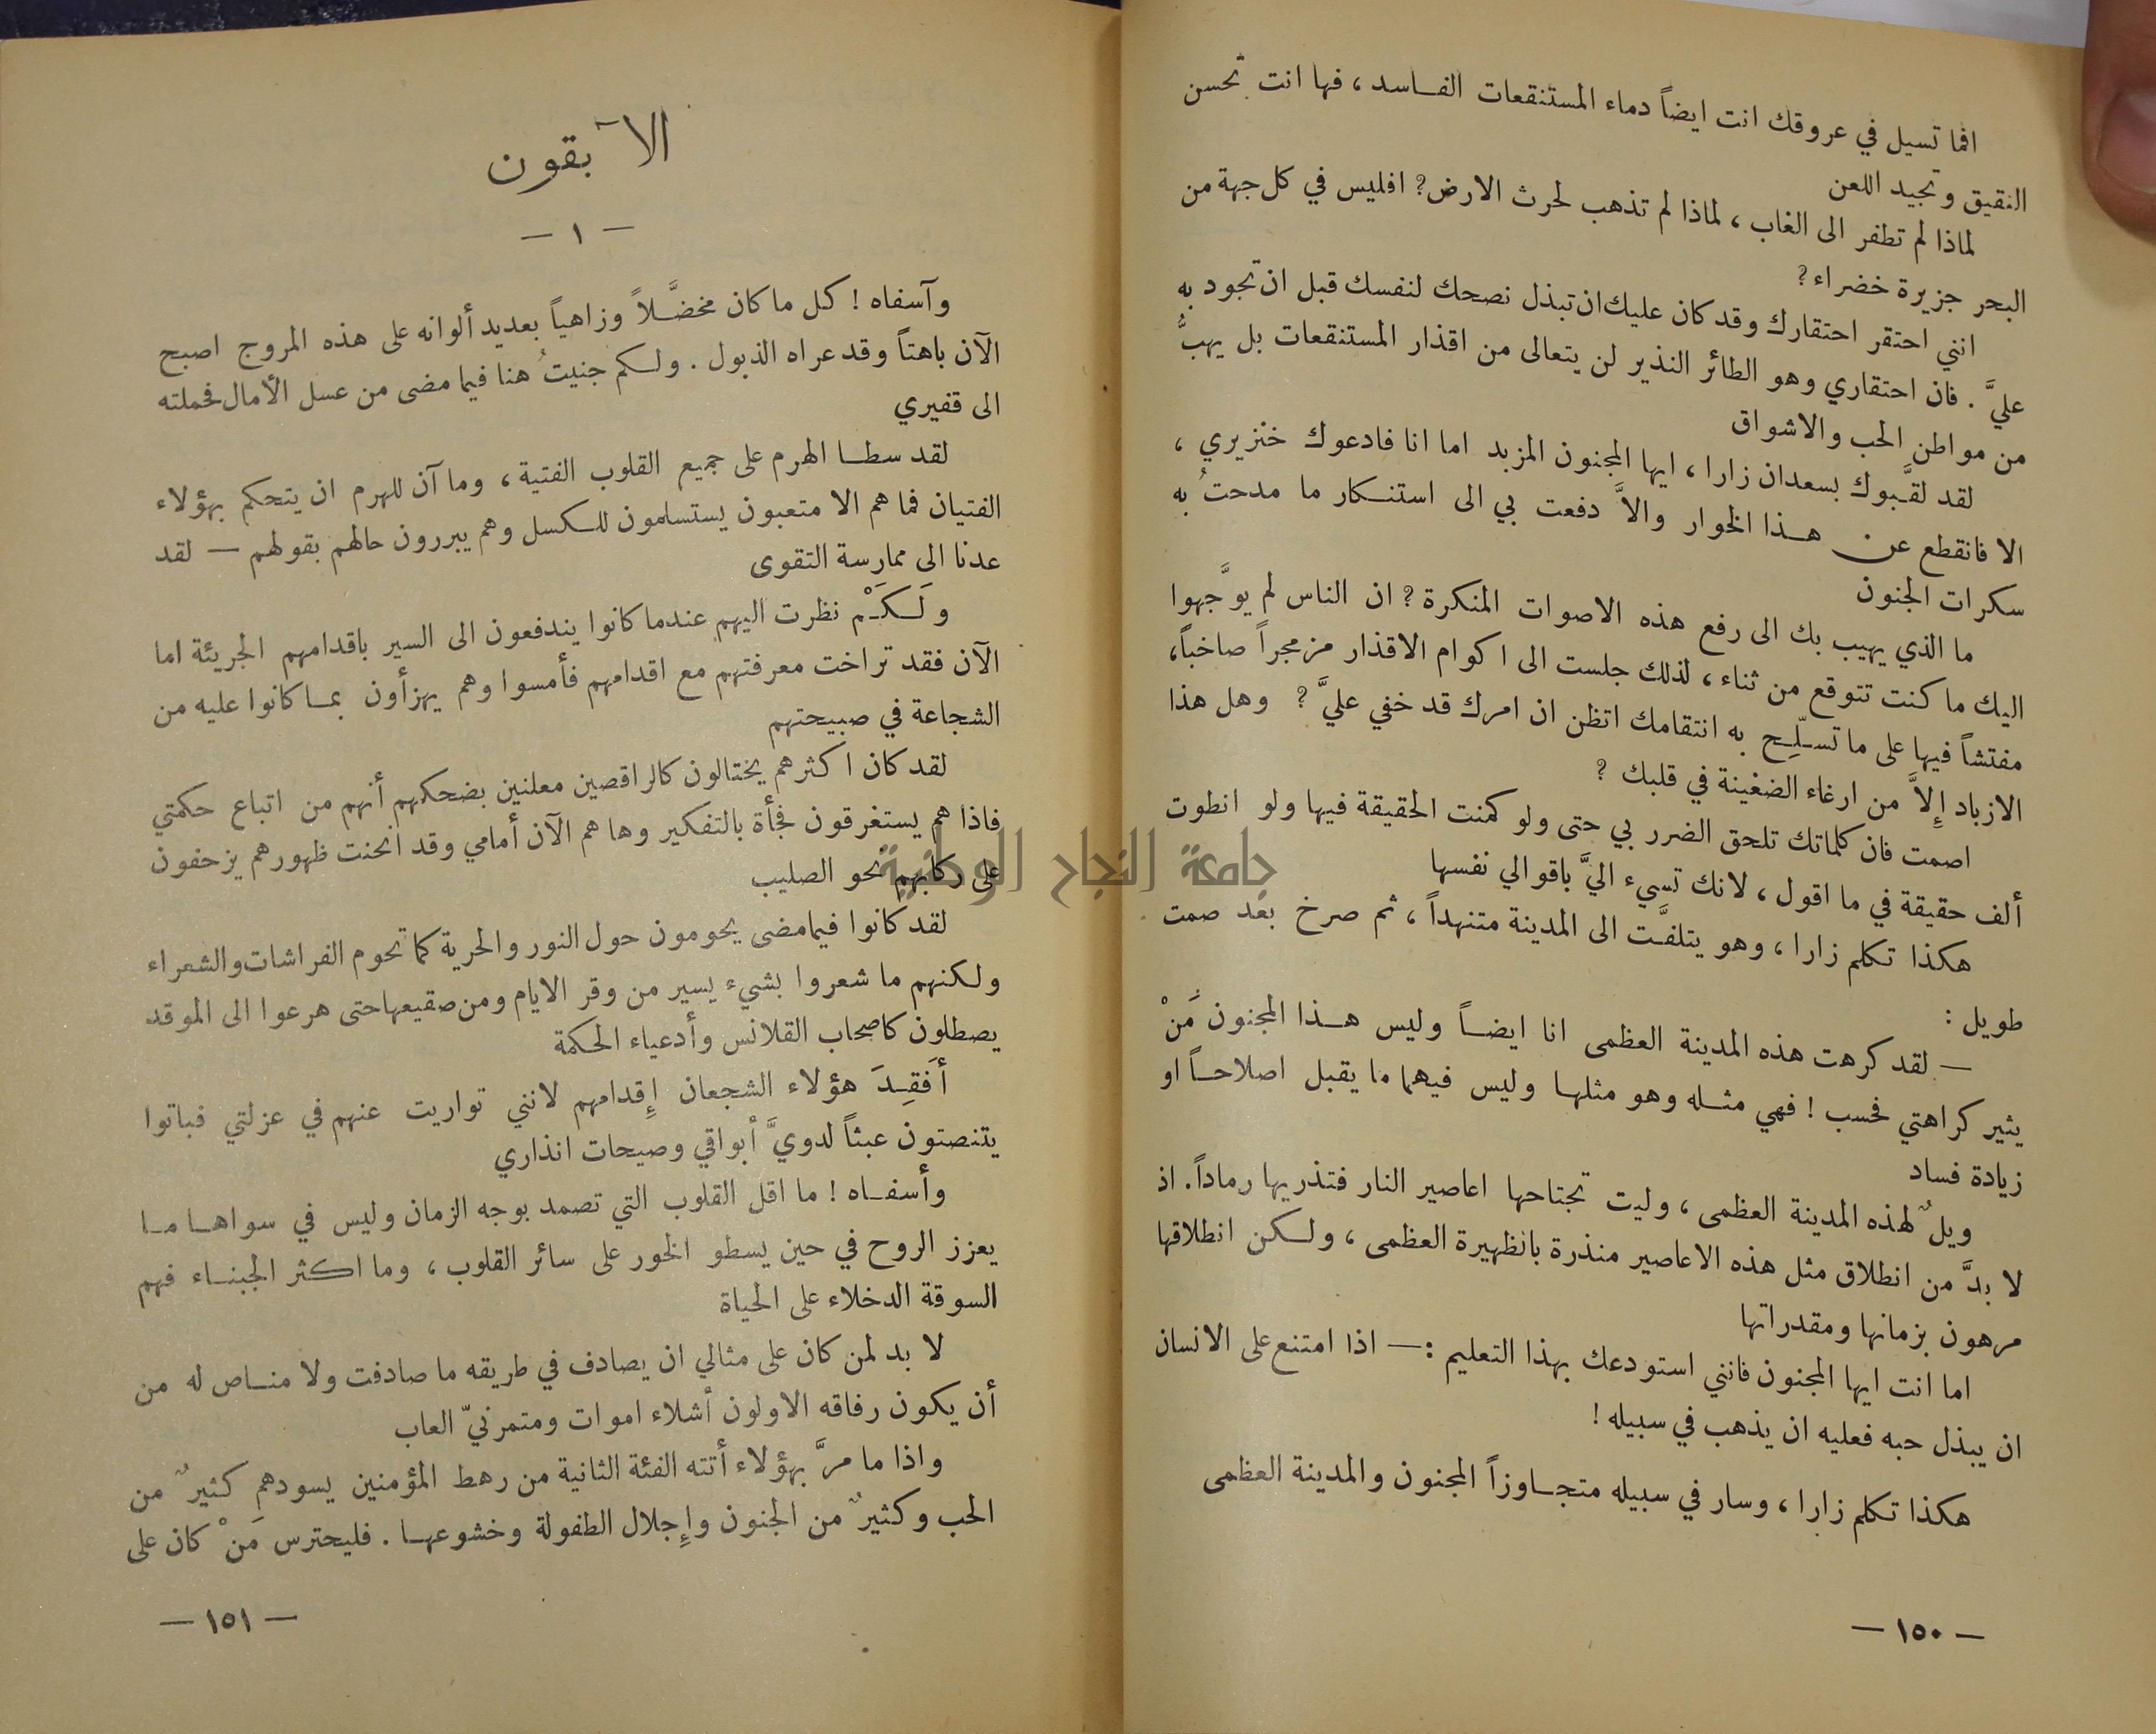 افما تسيل في عروقك انت ايضاً دماء المستنقعات الفاسد ، فها انت تحسن
النقيق وتجيد اللعن
لماذا لم تطفر الى الغاب ، لماذا لم تذهب لحرث الارض؟ افليس في كل جهة من
البحر جزيرة خضراء؟
انني احتقر احتقارك وقد كان عليك ان تبذل نصحك لنفسك قبل ان تجود به
عليَّ . فان احتقاري وهو الطائر النذير لن يتعالى من اقذار المستنقعات بل يهبُّ
من مواطن الحب والاشواق
لقد لقَّبوك بسعدان زارا ، ايها المجنون المزبد اما انا فادعوك خنزيري ،
الا فانقطع عن هذا الخوار والاَّ دفعت بي الى استنكار ما مدحتُ به
سكرات الجنون
ما الذي يهيب بك الى رفع هذه الاصوات المنكرة؟ ان الناس لم يوَّجهوا
اليك ما كنت تتوقع من ثناء ، لذلك جلست الى اكوام الاقذار مزمجراً صاخباً،
مفتشاً فيها على ما تسلِّح به انتقامك اتظن ان امرك قد خفي عليَّ ؟ وهل هذا
الازباد إِلاَّ من ارغاء الضغينة في قلبك ؟
اصمت فان كلماتك تلحق الضرر بي حتى ولو كمنت الحقيقة فيها ولو انطوت
ألف حقيقة في ما اقول ، لانك تسيء اليَّ باقوالي نفسها
هكذا تكلم زارا ، وهو يتلفَّت الى المدينة متنهداً ، ثم صرخ بعد صمت
طويل :
— لقد كرهت هذه المدينة العظمى انا ايضاً وليس هذا المجنون مَنْ
يثير كراهتي فحسب ! فهي مثله وهو مثلها وليس فيهما ما يقبل اصلاحاً او
زيادة فساد
ويلٌ لهذه المدينة العظمى ، وليت تجتاحها اعاصير النار فتذريها رماداً . اذ
لا بدَّ من انطلاق مثل هذه الاعاصير منذرة بالظهيرة العظمى ، ولكن انطلاقها
مرهون بزمانها ومقدراتها
اما انت ايها المجنون فانني استودعك بهذا التعليم :— اذا امتنع على الانسان
ان يبذل حبه فعليه ان يذهب في سبيله !
هكذا تكلم زارا ، وسار في سبيله متجاوزاً المجنون والمدينة العظمى
— ١٥٠ —
الآبقون
— ١ —
وآسفاه ! كل ما كان مخضَّلاً وزاهياً بعديد ألوانه على هذه المروج اصبح
الآن باهتاً وقد عراه الذبول . ولكم جنيتُ هنا فيما مضى من عسل الأمال فحملته
الى قفيري
لقد سطا الهرم على جميع القلوب الفتية ، وما آن للهرم ان يتحكم بهؤلاء
الفتيان فما هم الا متعبون يستسلمون للكسل وهم يبررون حالهم بقولهم — لقد
عدنا الى ممارسة التقوى
ولَكَمْ نظرت اليهم عندما كانوا يندفعون الى السير باقدامهم الجريئة اما
الآن فقد تراخت معرفتهم مع اقدامهم فأمسوا وهم يهزأون بما كانوا عليه من
الشجاعة في صبيحتهم
لقد كان اكثرهم يختالون كالراقصين معلنين بضحكهم أنهم من اتباع حكمتي
فاذا هم يستغرقون فجأة بالتفكير وها هم الآن أمامي وقد انحنت ظهورهم يزحفون
على ركابهم نحو الصليب
لقد كانوا فيما مضى يحومون حول النور والحرية كما تحوم الفراشات والشعراء
ولكنهم ما شعروا بشيء يسير من وقر الايام ومن صقيعها حتى هرعوا الى الموقد
يصطلون كاصحاب القلانس وأدعياء الحكمة
أفَقِدَ هؤلاء الشجعان إِقدامهم لانني تواريت عنهم في عزلتي فباتوا
يتنصتون عبثاً لدويَّ أبواقي وصيحات انذاري
وأسفاه ! ما اقل القلوب التي تصمد بوجه الزمان وليس في سواها ما
يعزز الروح في حين يسطو الخور على سائر القلوب ، وما اكثر الجبناء فهم
السوقة الدخلاء على الحياة
لا بد لمن كان على مثالي ان يصادف في طريقه ما صادفت ولا مناص له من
أن يكون رفاقه الاولون أشلاء اموات ومتمرنيّ العاب
واذا ما مرَّ بهؤلاء أتته الفئة الثانية من رهط المؤمنين يسودهم كثيرٌ من
الحب وكثيرٌ من الجنون وإِجلال الطفولة وخشوعها . فليحترس مَنْ كان على
— ١٥١ —
جامعة النجاح الوطنية